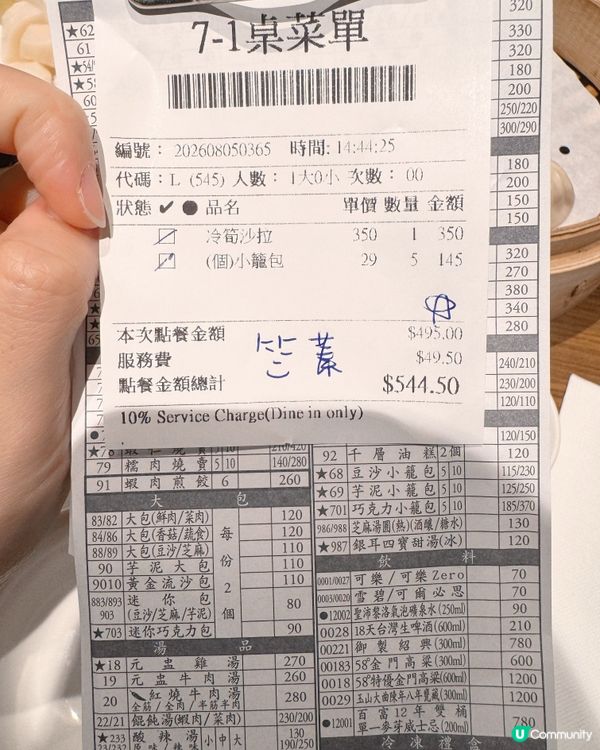 7-1桌菜單
編號： 202608050365 時間: 14:44:25
代碼：L (545) 人數： 1大0小 次數： 00
狀態 ✔ ● 品名 單價 數量 金額
冷筍沙拉 350 1 350
(個)小籠包 29 5 145
本次點餐金額 $495.00
服務費 $49.50
點餐金額總計 $544.50
10% Service Charge(Dine in only)
320
330
320
180
200
250/220
300/290
180
200
150
150
320
270
380
340
280
240/210
230/200
120/110
120/150
★62
61
79 糯肉燒賣 5 10 140/280
91 蝦肉煎餃 6 260
大包
83/82 大包(鮮肉/菜肉) 120
84/86 大包(香菇/蔬食) 120
88/89 大包(豆沙/芝麻) 110
90 芋泥大包 110
9010 黃金流沙包 110
每份2個
883/893 903 迷你包 (豆沙/芝麻/芋泥) 80
★703 迷你巧克力包 90
湯品
★18 元盅雞湯 270
19 元盅牛肉湯 260
20 紅燒牛肉湯 全筋/全肉/半筋半肉 280
22/21 餛飩湯(蝦肉/菜肉) 230/200
★233 酸辣湯 小 中 大 130
190/250
92 千層油糕 2個 120
★68 豆沙小籠包 5 10 115/230
★69 芋泥小籠包 5 10 125/250
★701 巧克力小籠包 5 10 185/370
986/988 芝麻湯圓(熱)(酒釀/糖水) 130
★987 銀耳四寶甜湯(冰) 120
飲料
0001/0027 可樂/可樂Zero 70
0003/0020 雪碧/可爾必思 70
●12002 聖沛黎洛氣泡礦泉水(250ml) 90
0028 18天台灣生啤酒(600ml) 210
00221 御製紹興(300ml) 780
00183 58°金門高粱(300ml) 600
0018 58°特優金門高粱(600ml) 1200
0029 玉山大曲陳年八年寶藏(300ml) 1200
●12001 百富12年雙桶 單一麥芽威士忌(200ml) 780
冷凍禮盒